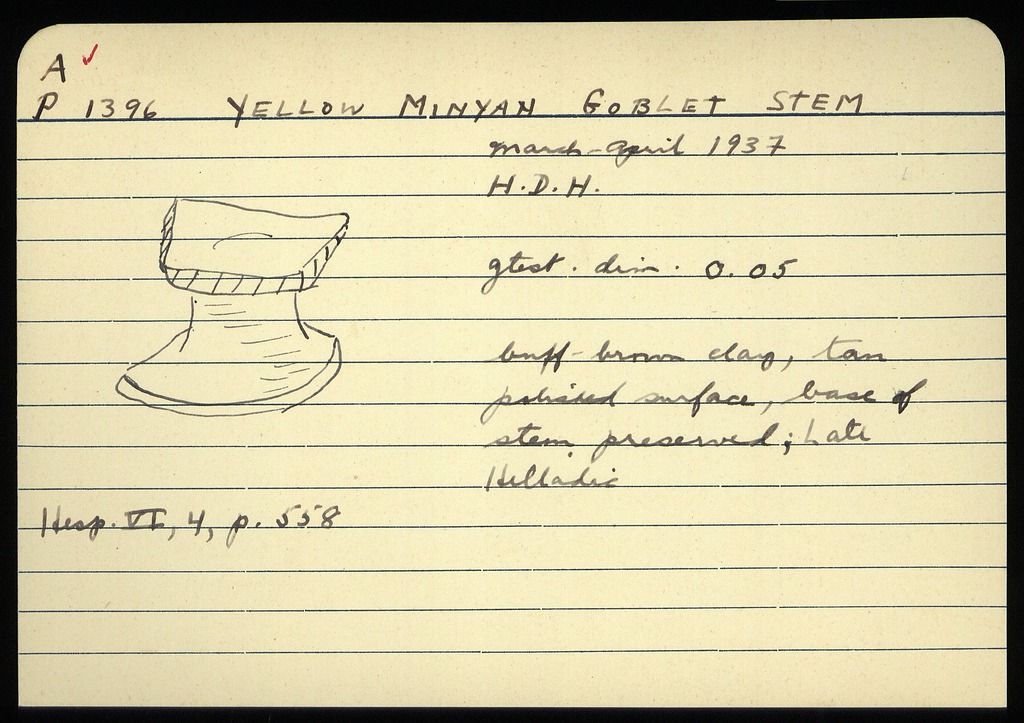 A ✓
P 1396 YELLOW MINYAN GOBLET STEM
March-April 1937
H.D.H.
gtest. dim. 0.05
buff-brown clay, tan
polished surface, base of
stem preserved; Late
Helladic
Hesp. VI, 4, p. 558